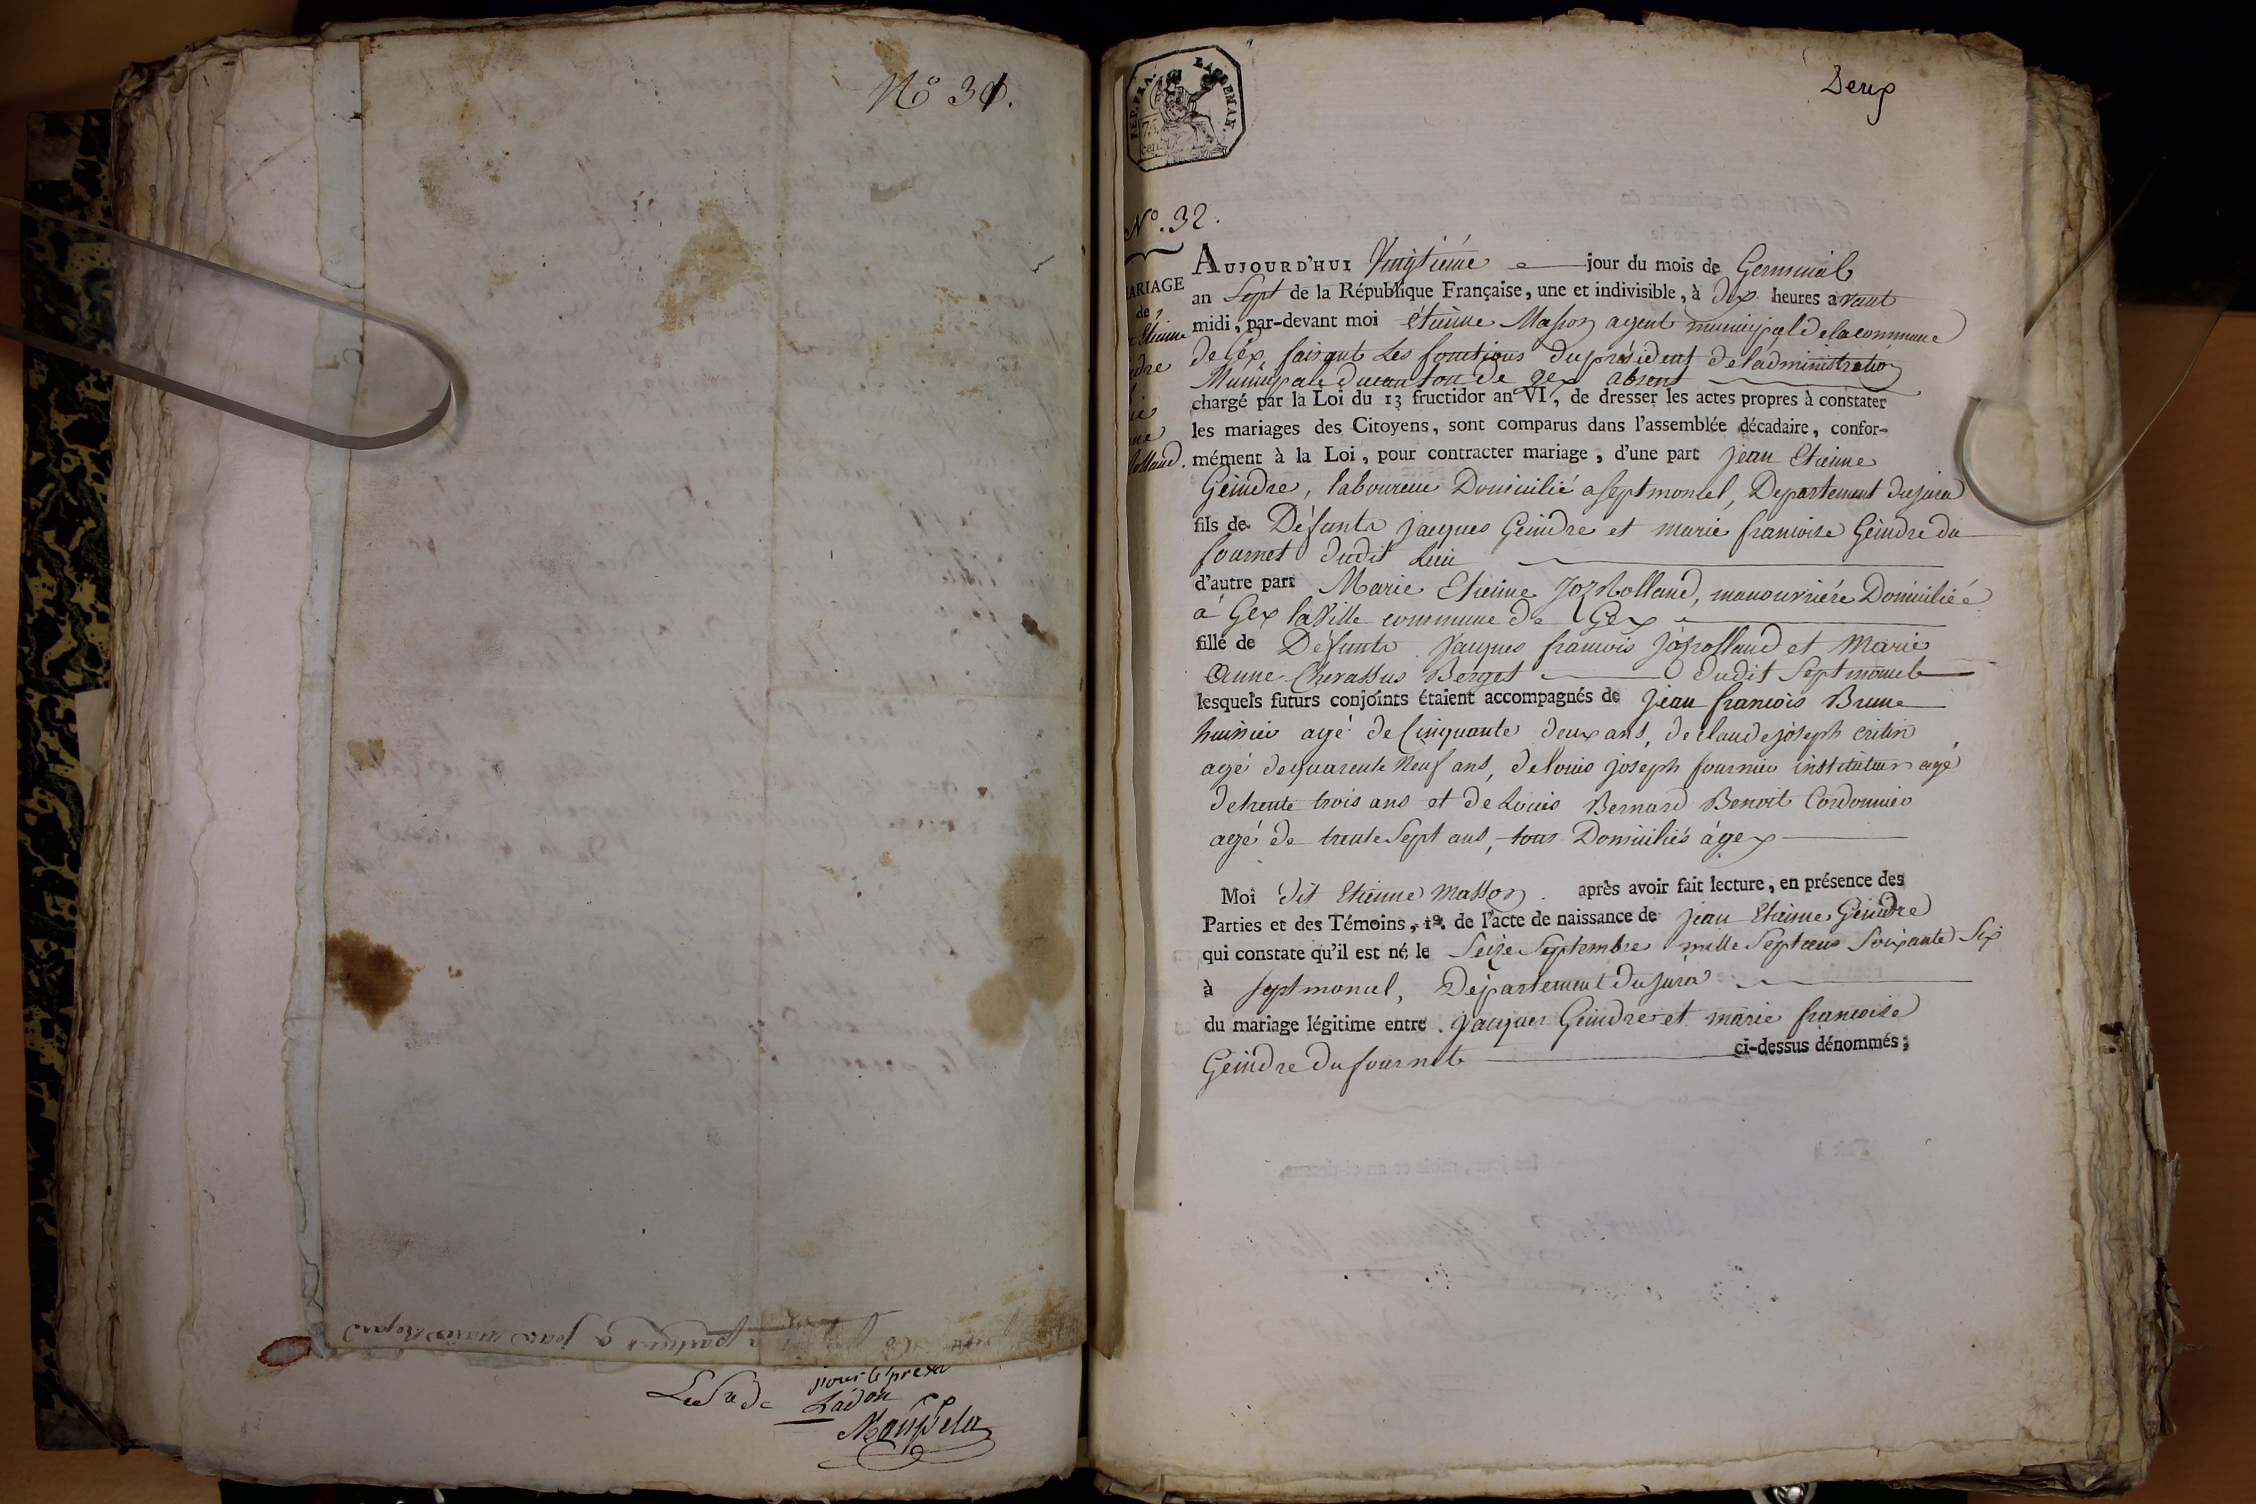 N° 31.
pour le presd
Ladon
Deux
REP. FRA.
75
cen.
N°. 32.
MARIAGE
de
Etienne
AUJOURD'HUI Vingtième jour du mois de Germinal
an Sept de la République Française, une et indivisible, à dix heures avant
midi, par-devant moi étienne Masson agent municipal de la commune
de Gex, faisant Les fonctions du président de l'administration
Municipale du canton de gex absent
chargé par la Loi du 13 fructidor an VI, de dresser les actes propres à constater
les mariages des Citoyens, sont comparus dans l'assemblée décadaire, confor-
mément à la Loi, pour contracter mariage, d'une part jean Etienne
Geindre, laboureur Domicilié a septmoncel, Departement du jura
fils de Défunts jacques Geindre et marie francoise Geindre du
fournet dudit Lieu
d'autre part Marie Etienne Jozrolland, manouvrière Domiciliée
à Gex la Ville commune de Gex
fille de Défunts jacques francois jozrolland et Marie
Anne Chevassus Berget dudit Septmoncel
lesquels futurs conjoints étaient accompagnés de jean francois Brune
huissier agé de Cinquante deux ans, de claude joseph critin
agé de quarente Neuf ans, de louis joseph fournier instituteur agé
de trente trois ans et de Louis Bernard Benoit Cordonnier
agé de trente Sept ans, tous Domiciliés à gex
Moi dit Etienne Masson après avoir fait lecture, en présence des
Parties et des Témoins, 1º. de l'acte de naissance de jean Etienne Geindre
qui constate qu'il est né le Seize Septembre mille Sept cens Soixante Six
à septmoncel, Département du jura
du mariage légitime entre jacques Geindre et marie francoise
Geindre du fournet ci-dessus dénommés;